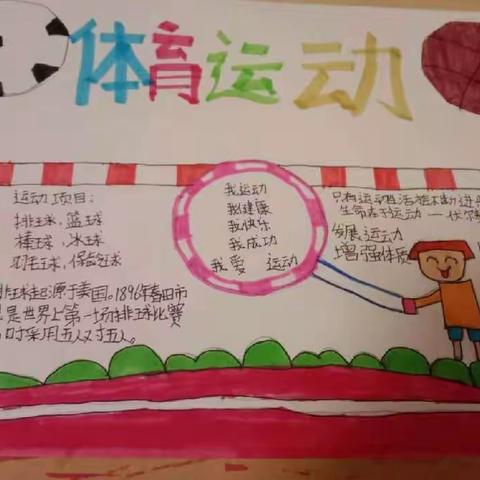 体育运动
运动项目：
排球，篮球
棒球，冰球
羽毛球，保龄球
排球起源于美国。1896年
是世界上第一场排球比赛
时采用五人对五人。
我运动
我健康
我快乐
我成功
我爱 运动
只有运动
生命在于运动一伏尔
发展运动
增强体质